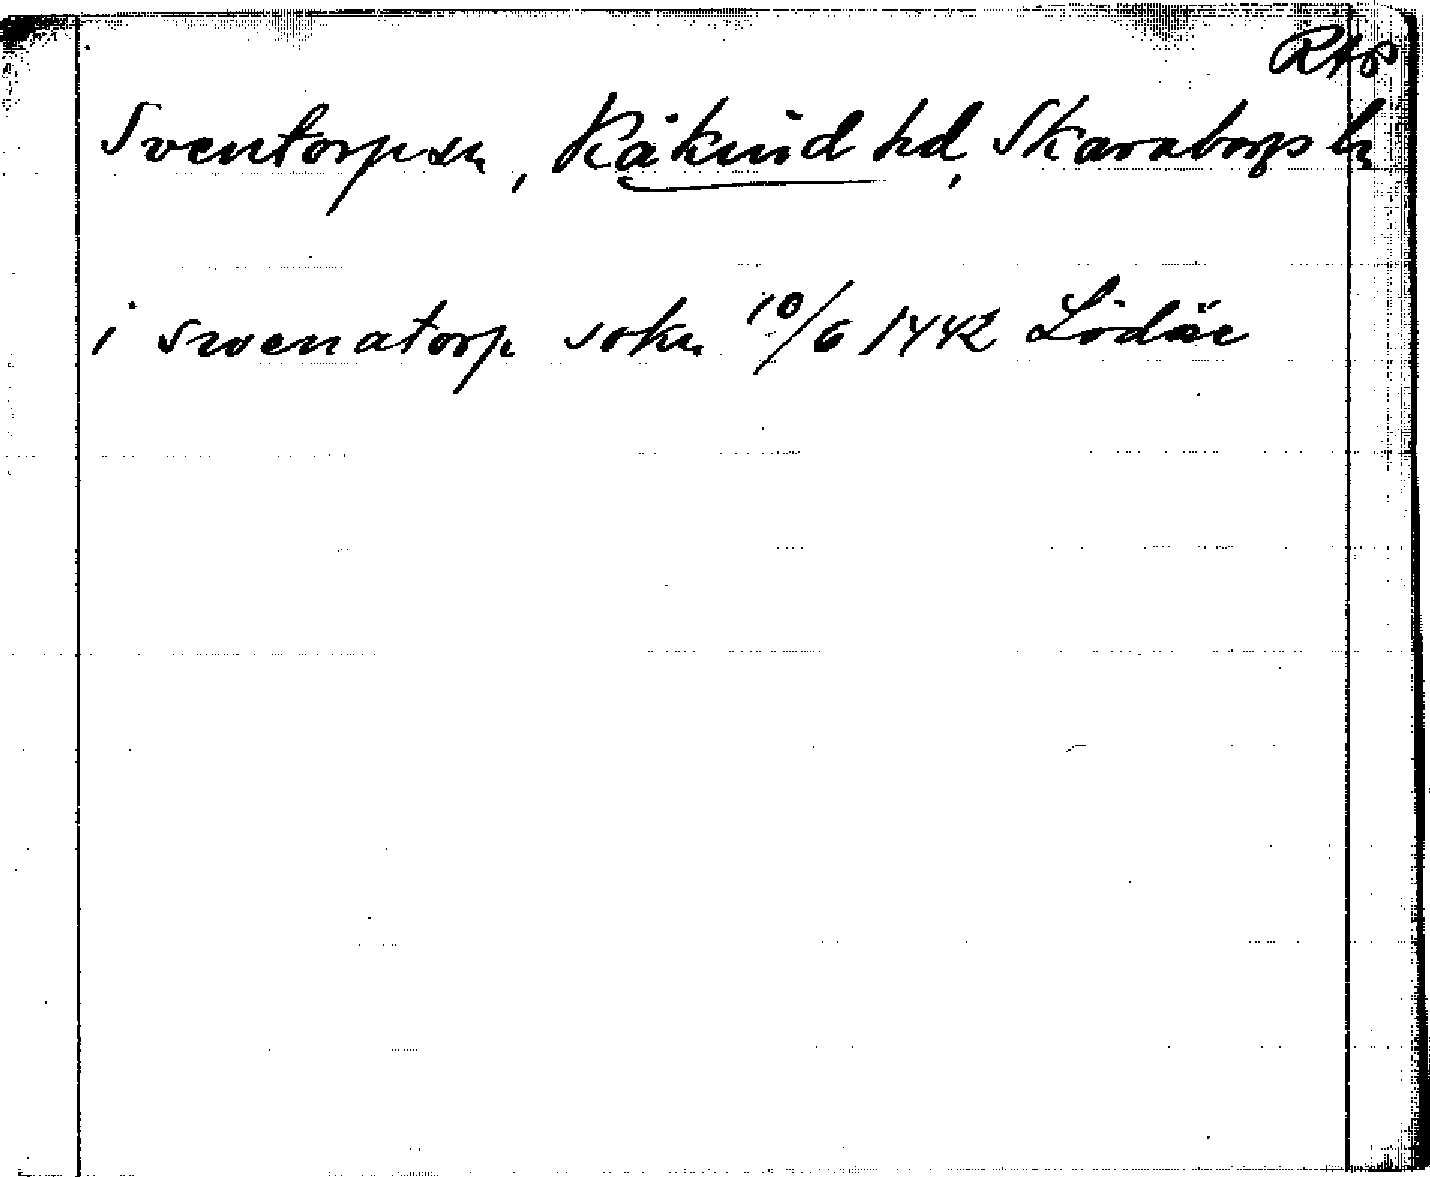 RAp
Sventorp sn, Kåkind hd, Skaraborgs l:n
i swenatorp sokn 10/6 1442 Lödöse